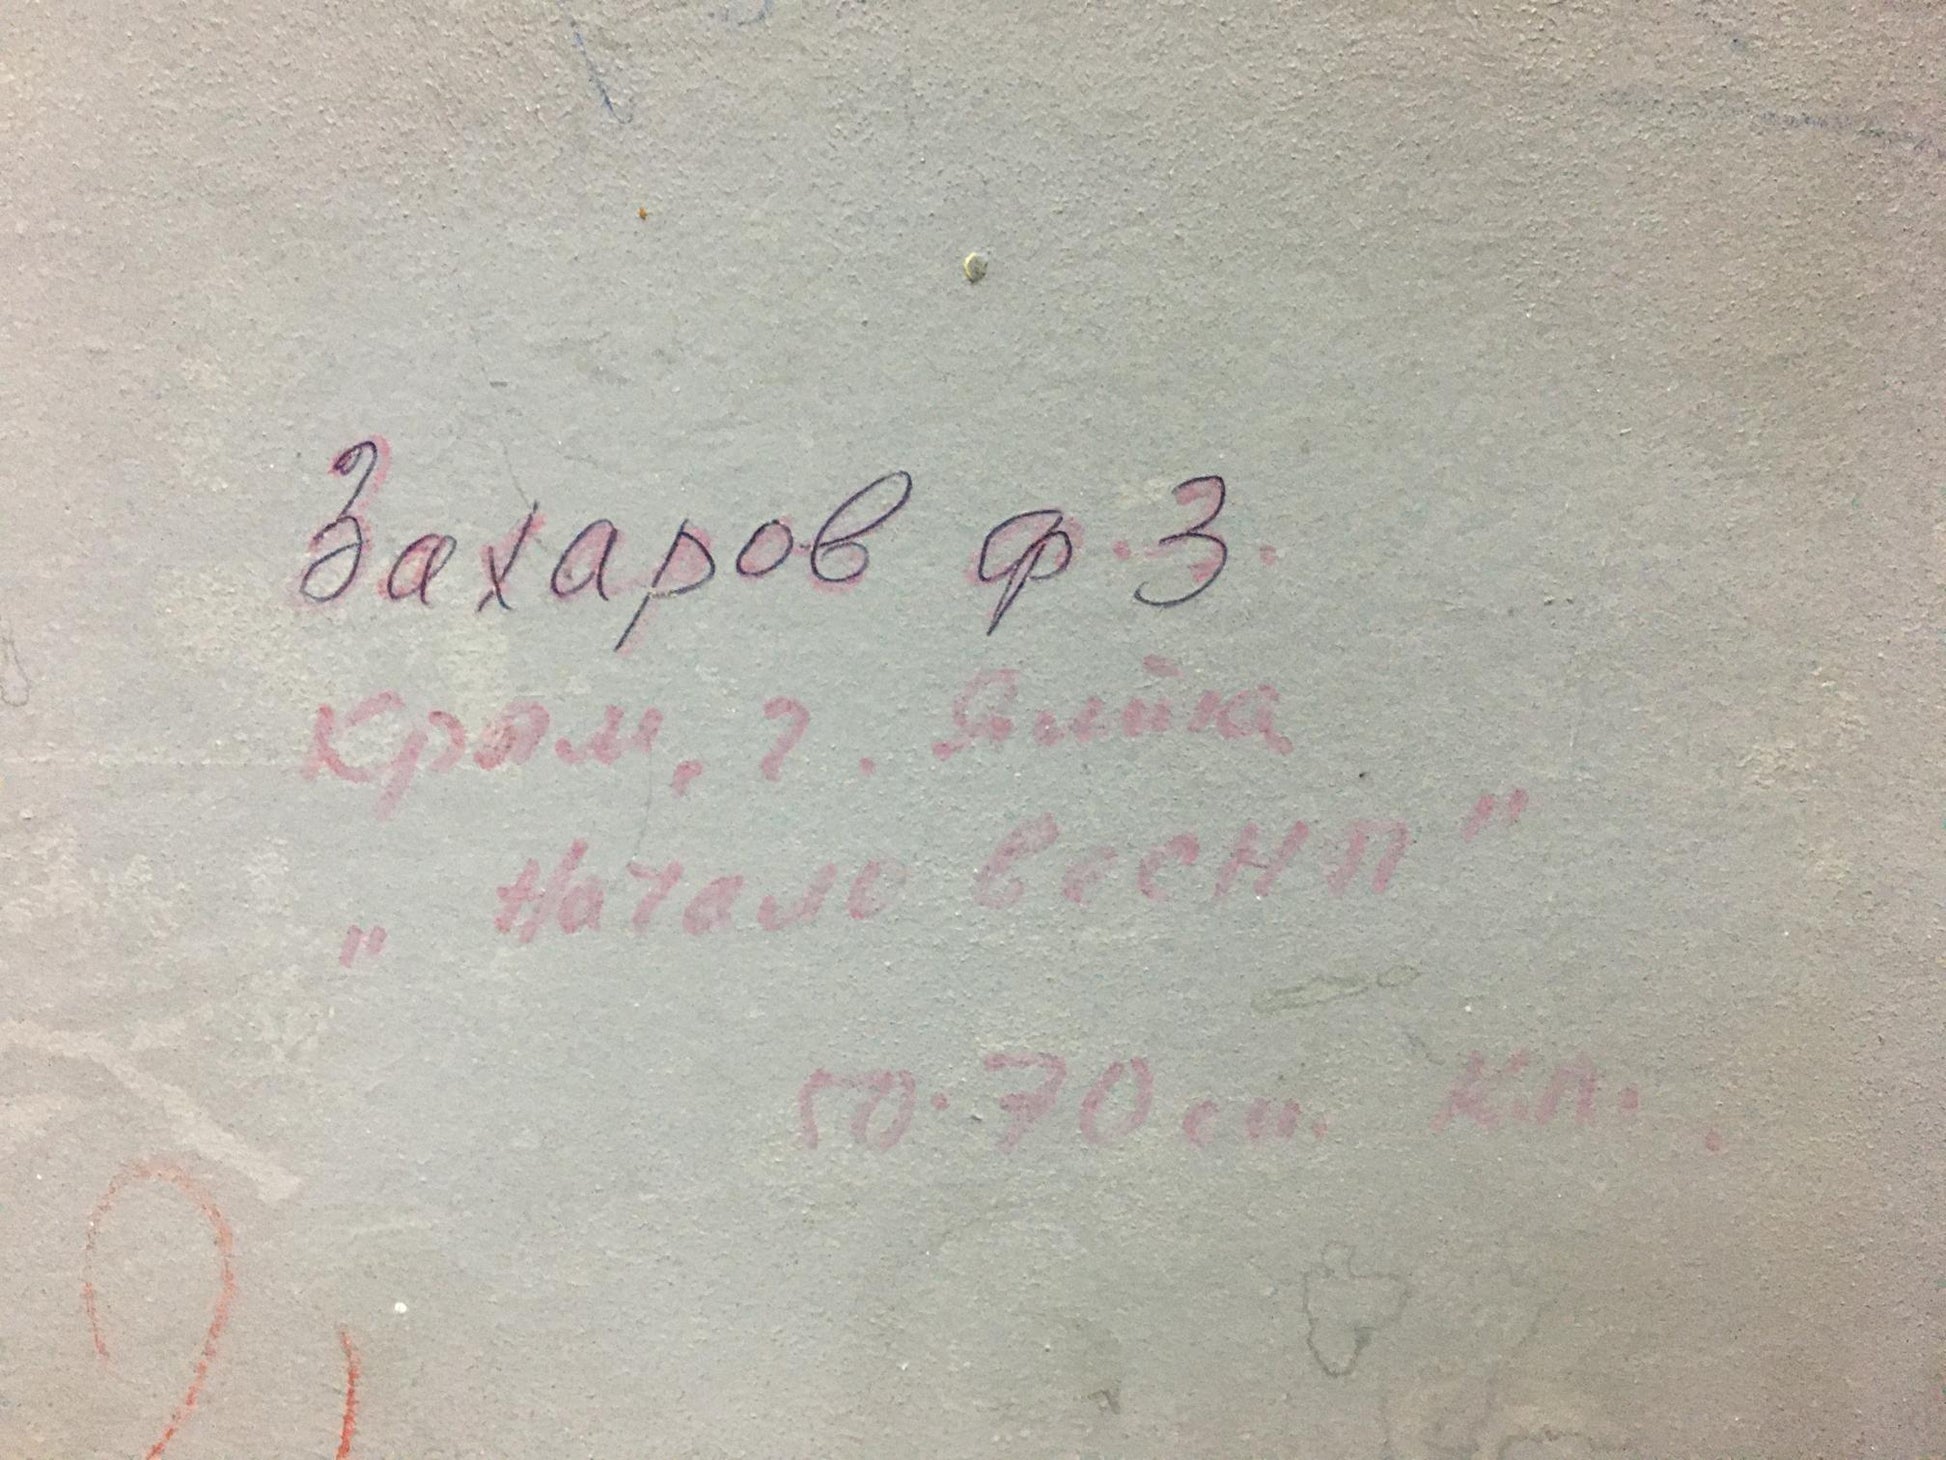 Захаров Ф.З.
Крым, г. Ялта
„Начало весны"
50·70 см. к.м.